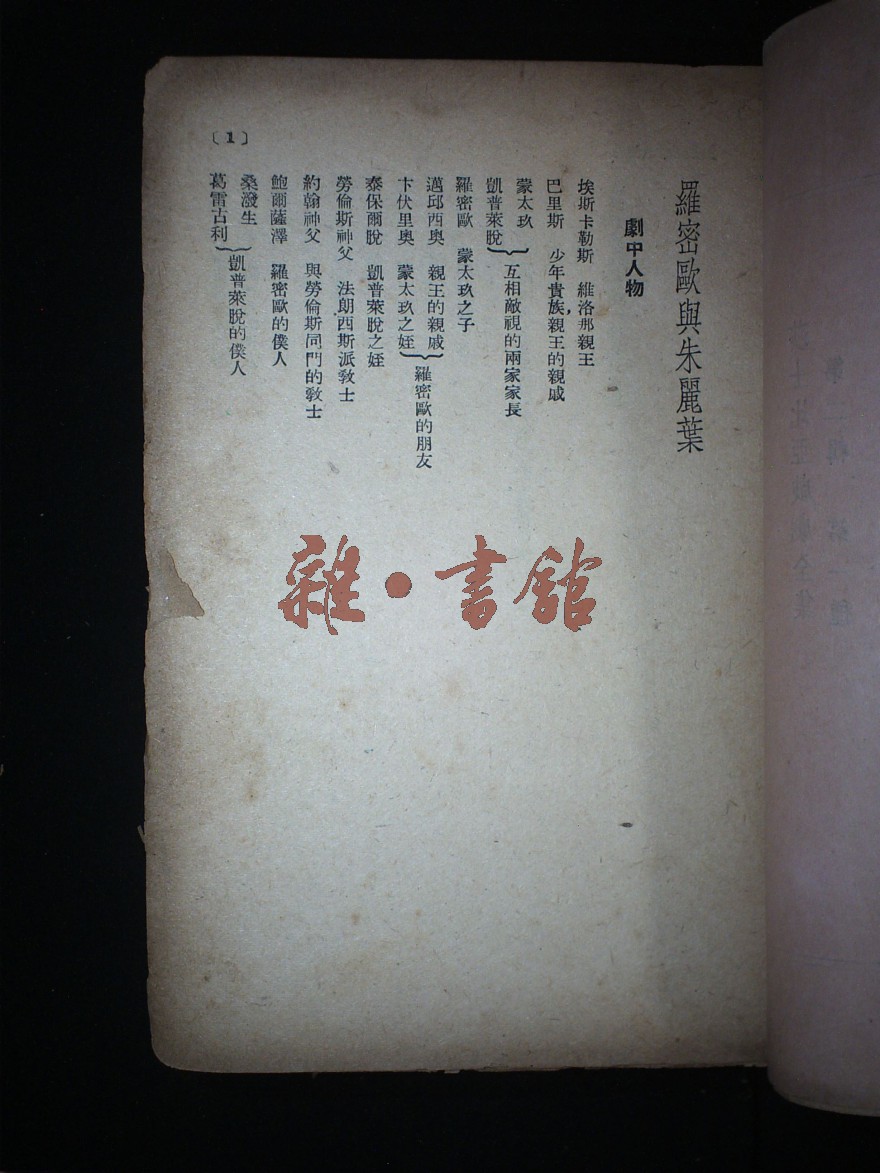 羅密歐與朱麗葉
劇中人物
埃斯卡勒斯 維洛那親王
巴里斯 少年貴族，親王的親戚
蒙太玖
凱普萊脫
互相敵視的兩家家長
羅密歐 蒙太玖之子
邁邱西奧 親王的親戚
卞伏里奧 蒙太玖之姪
羅密歐的朋友
泰保爾脫 凱普萊脫之姪
勞倫斯神父 法朗西斯派教士
約翰神父 與勞倫斯同門的教士
鮑爾薩澤 羅密歐的僕人
桑潑生
葛雷古利
凱普萊脫的僕人
〔1〕
雜·書館